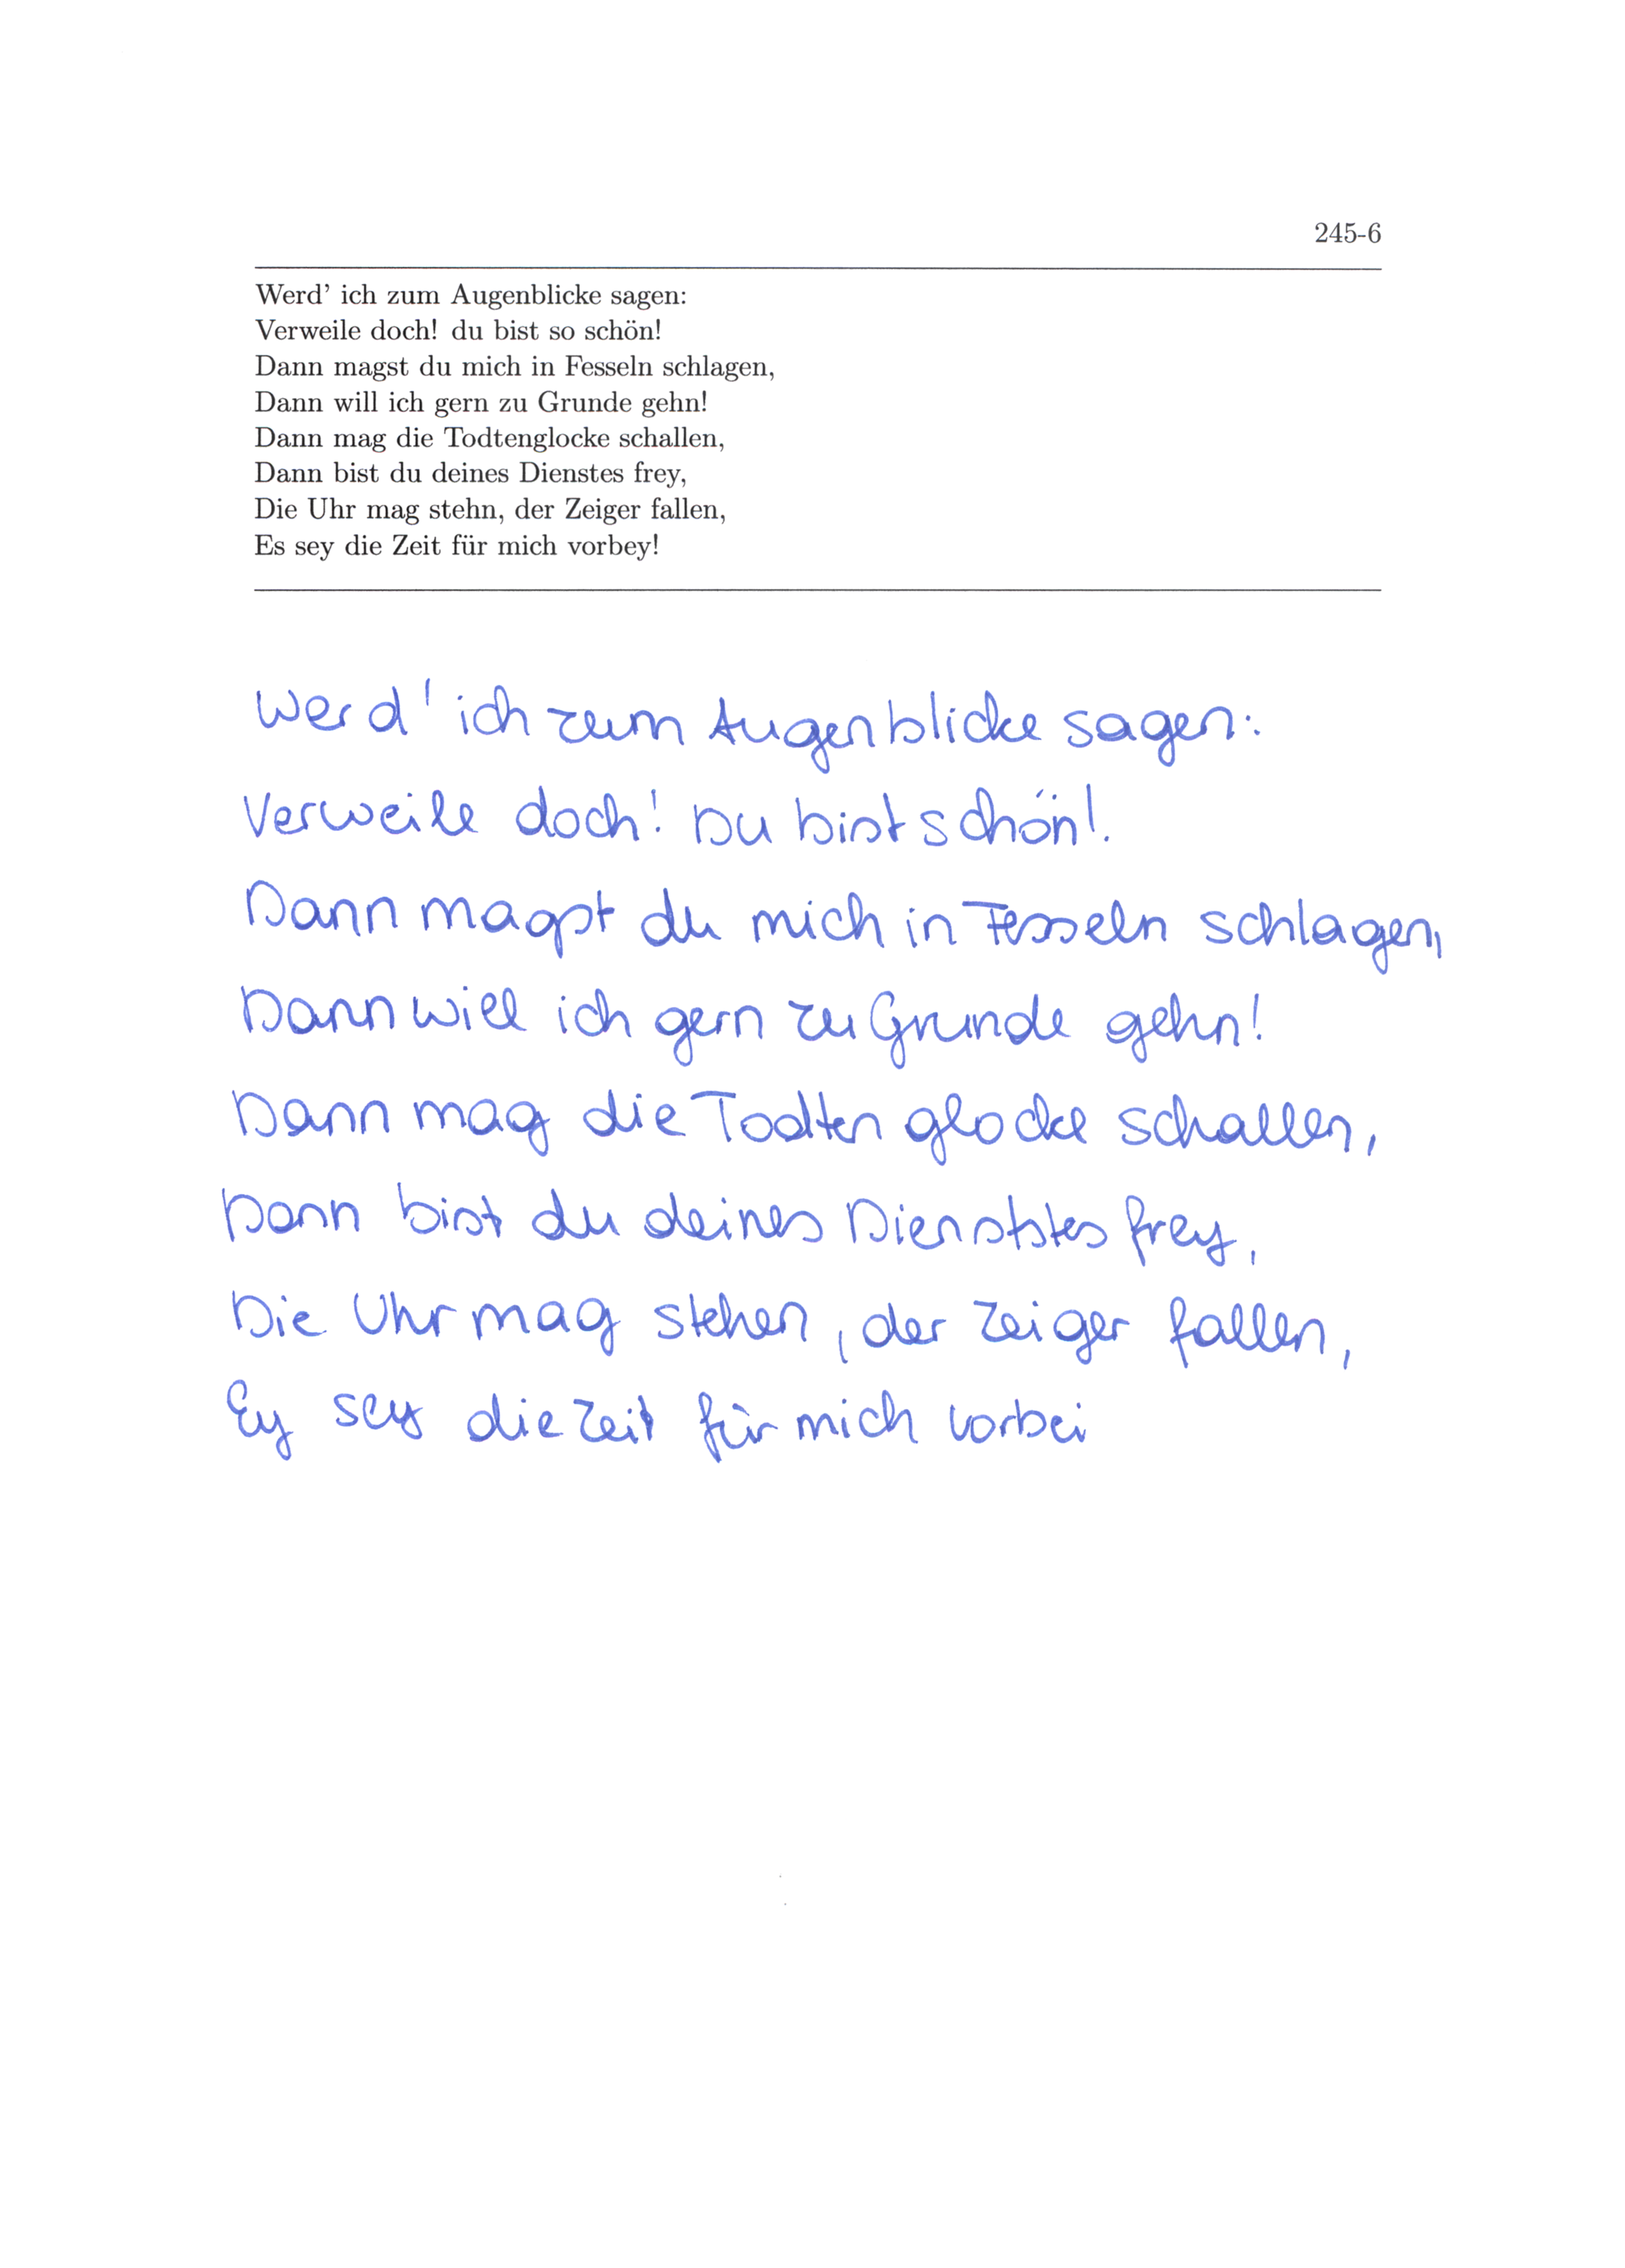 245-6
Werd' ich zum Augenblicke sagen:
Verweile doch! du bist so schön!
Dann magst du mich in Fesseln schlagen,
Dann will ich gern zu Grunde gehn!
Dann mag die Todtenglocke schallen,
Dann bist du deines Dienstes frey,
Die Uhr mag stehn, der Zeiger fallen,
Es sey die Zeit für mich vorbey!
Werd' ich zum Augenblicke sagen:
Verweile doch! Du bist schön!
Dann magst du mich in Fesseln schlagen,
Dann will ich gern zu Grunde gehn!
Dann mag die Todtenglocke schallen,
Dann bist du deines Dienststes frey,
Die Uhr mag stehen, der Zeiger fallen,
Ey sey die Zeit für mich vorbei